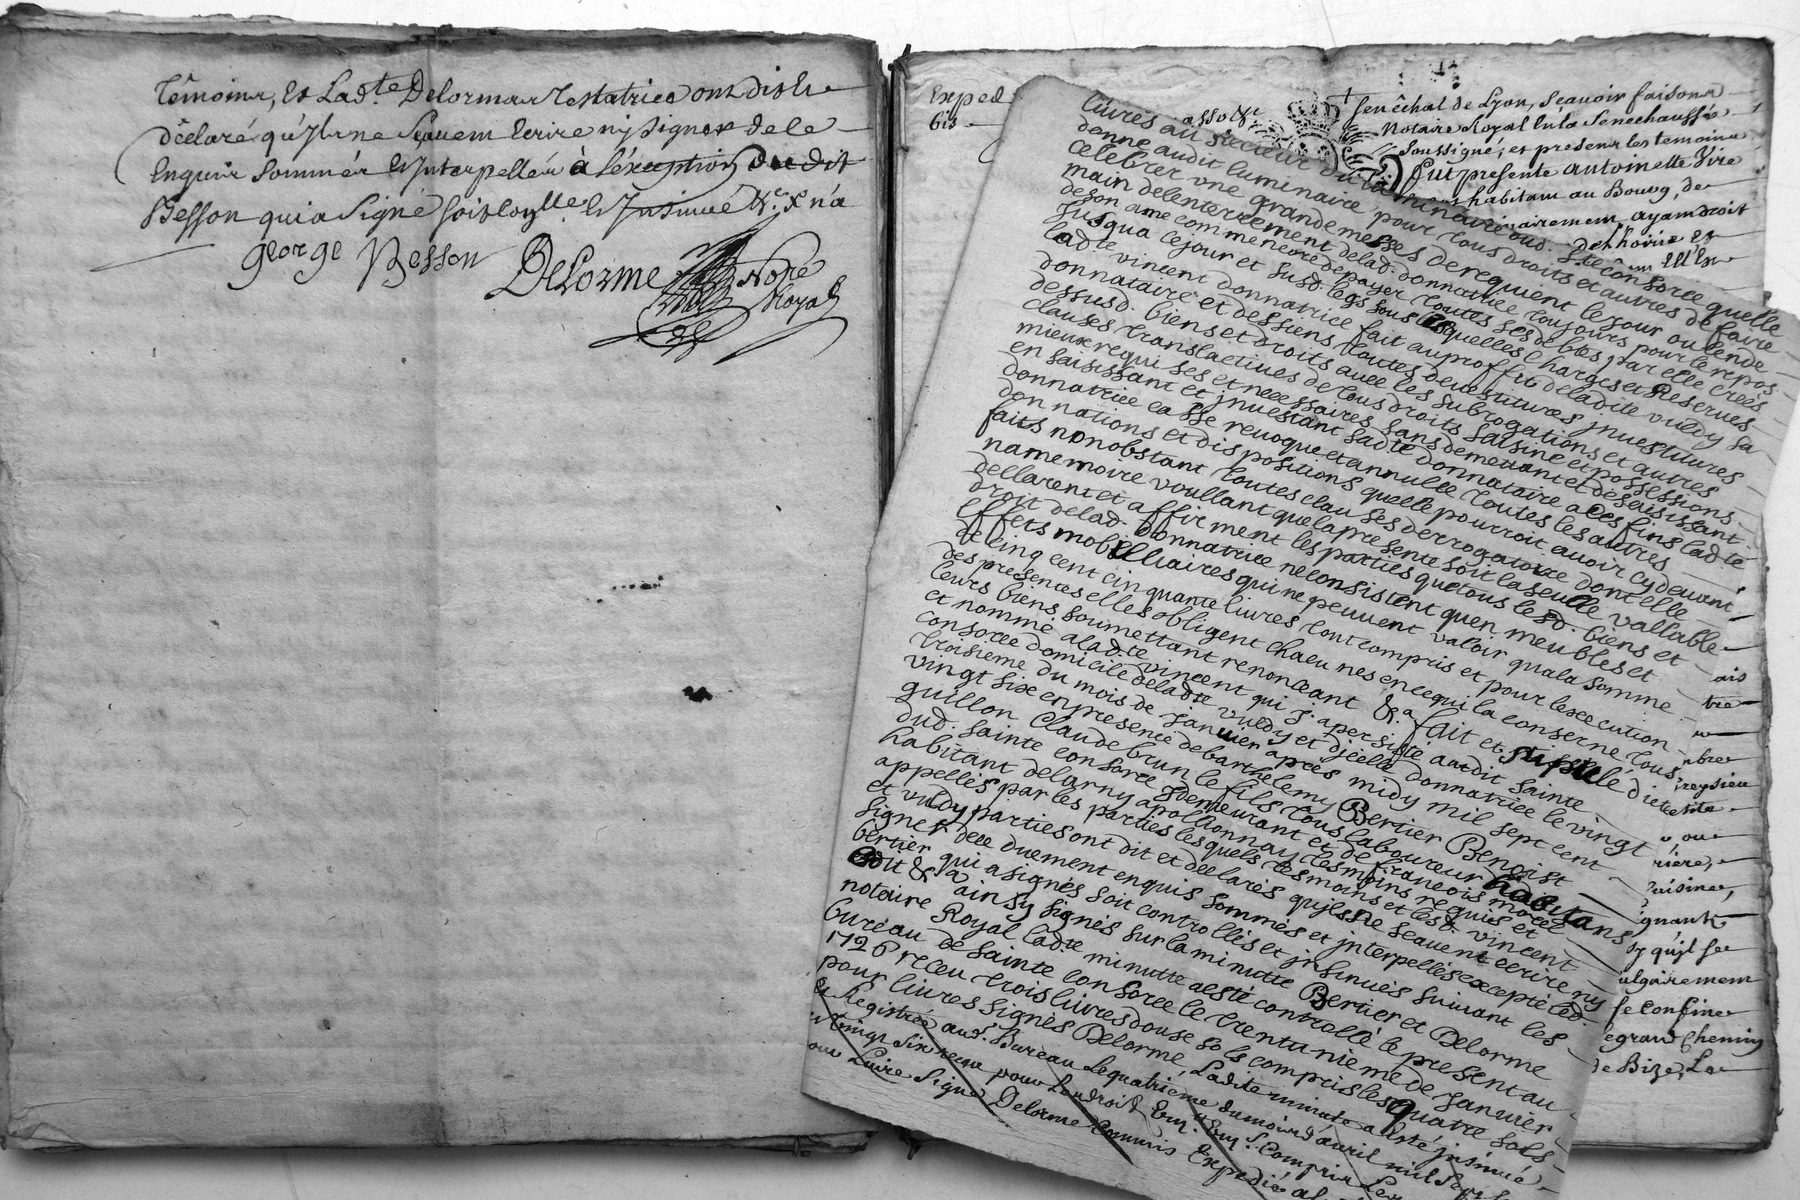 témoins, et Lad.te Delorme testatrice ont dit et
déclaré qu'ils ne scavent écrire ny signer de ce
enquis sommés et interpellés à l'éxception du dit
Besson qui a signé soit et Insinué &c. X n'a
george Besson
DeLorme Nore
Royal
Exped
bis
asso &c
Senêchal de Lyon, scavoir faisons
Notaire Royal en la Senechaussée
soussigné, et presens les temoins
fut presente antoinette
habitant au Bourg, de
ayant droit
livres au sieur du luminaire dud. Ste Consorce quelle
donne audit luminaire pour tous droits et autres de faire
celebrer une grande messes de requient le jour ou lende
main de lenterrement delad. donnatrice toujours pour le repos
de son ame comme encore de payer toutes ses debtes par elle creés
jusqua ce jour et susd. legs sous lesquelles charges et Reserves
ladte vincent donnatrice fait au proffit de ladite vuldy sa
donnataire et des siens toutes devestitures jnvestitures
dessusd. biens et droits avec les subrogations et autres
clauses translactives de tous droits saisine et possessions
mieux requises et necessaires sans demettant et desaisissant
en saisissant et jnvestant sadte donnataire a ces fins ladte
donnatrice casse revoque et annulle toutes les autres
donnations et dispositions quelle pourroit avoir cy devant
faits nonobstant toutes clauses derrogatoire dont elle
na memoire voullant que la presente soit la seulle vallable
dellarent et affirment les parties que tous le sd. biens et
droit delad. Donnatrice ne consistent quen meubles et
effets mobilliaires qui ne peuvent valoir qua la somme
de cinq cent cinquante livres tout compris et pour lexecution
des presentes elles obligent chacunes en ce qui la conserne tous
leurs biens soumettant renonceant &.a fait et stipulé
et nommé a ladte vincent qui j a persisté audit sainte
consorce domicile de ladte vuldy et djcelle donnatrice le vingt
troisieme du mois de janvier apres midy mil sept cent
vingt six en presence de barthelemy Bertier Benoist
guillon Claude brun le fils tous laboureur habitans
dud. sainte consorce demeurant et de francois morel
habitant delarny apollionnay tesmoins requis et
appellés par les parties lesquels tesmoins et lesd. vincent
et vuldy parties ont dit et declarés qujls ne scavent ecrire ny
signer de ce duement enquis sommés et jnterpellés excepté led.
bertier qui a signés soit controllés et jnsinués suivant les
Edit & a ainsy signés sur la minutte Bertier et Delorme
notaire Royal ladte minutte aesté controllé le present au
bureau de sainte Consorce le trentunieme de Janvier
1726 receu trois livres douse sols compris les quatre sols
pour livres signés Delorme, Ladite minute a esté jnsinué
et Registrée aud. Bureau Le quatrieme du mois d'avril mil Sept
vingt six receu pour Le droit
pour Livre Signé Delorme Commis Expedié
ais
tre
ou
gnant
qu'il se
ulgairement
se Confine
legrand Chemin
de Bize, Le